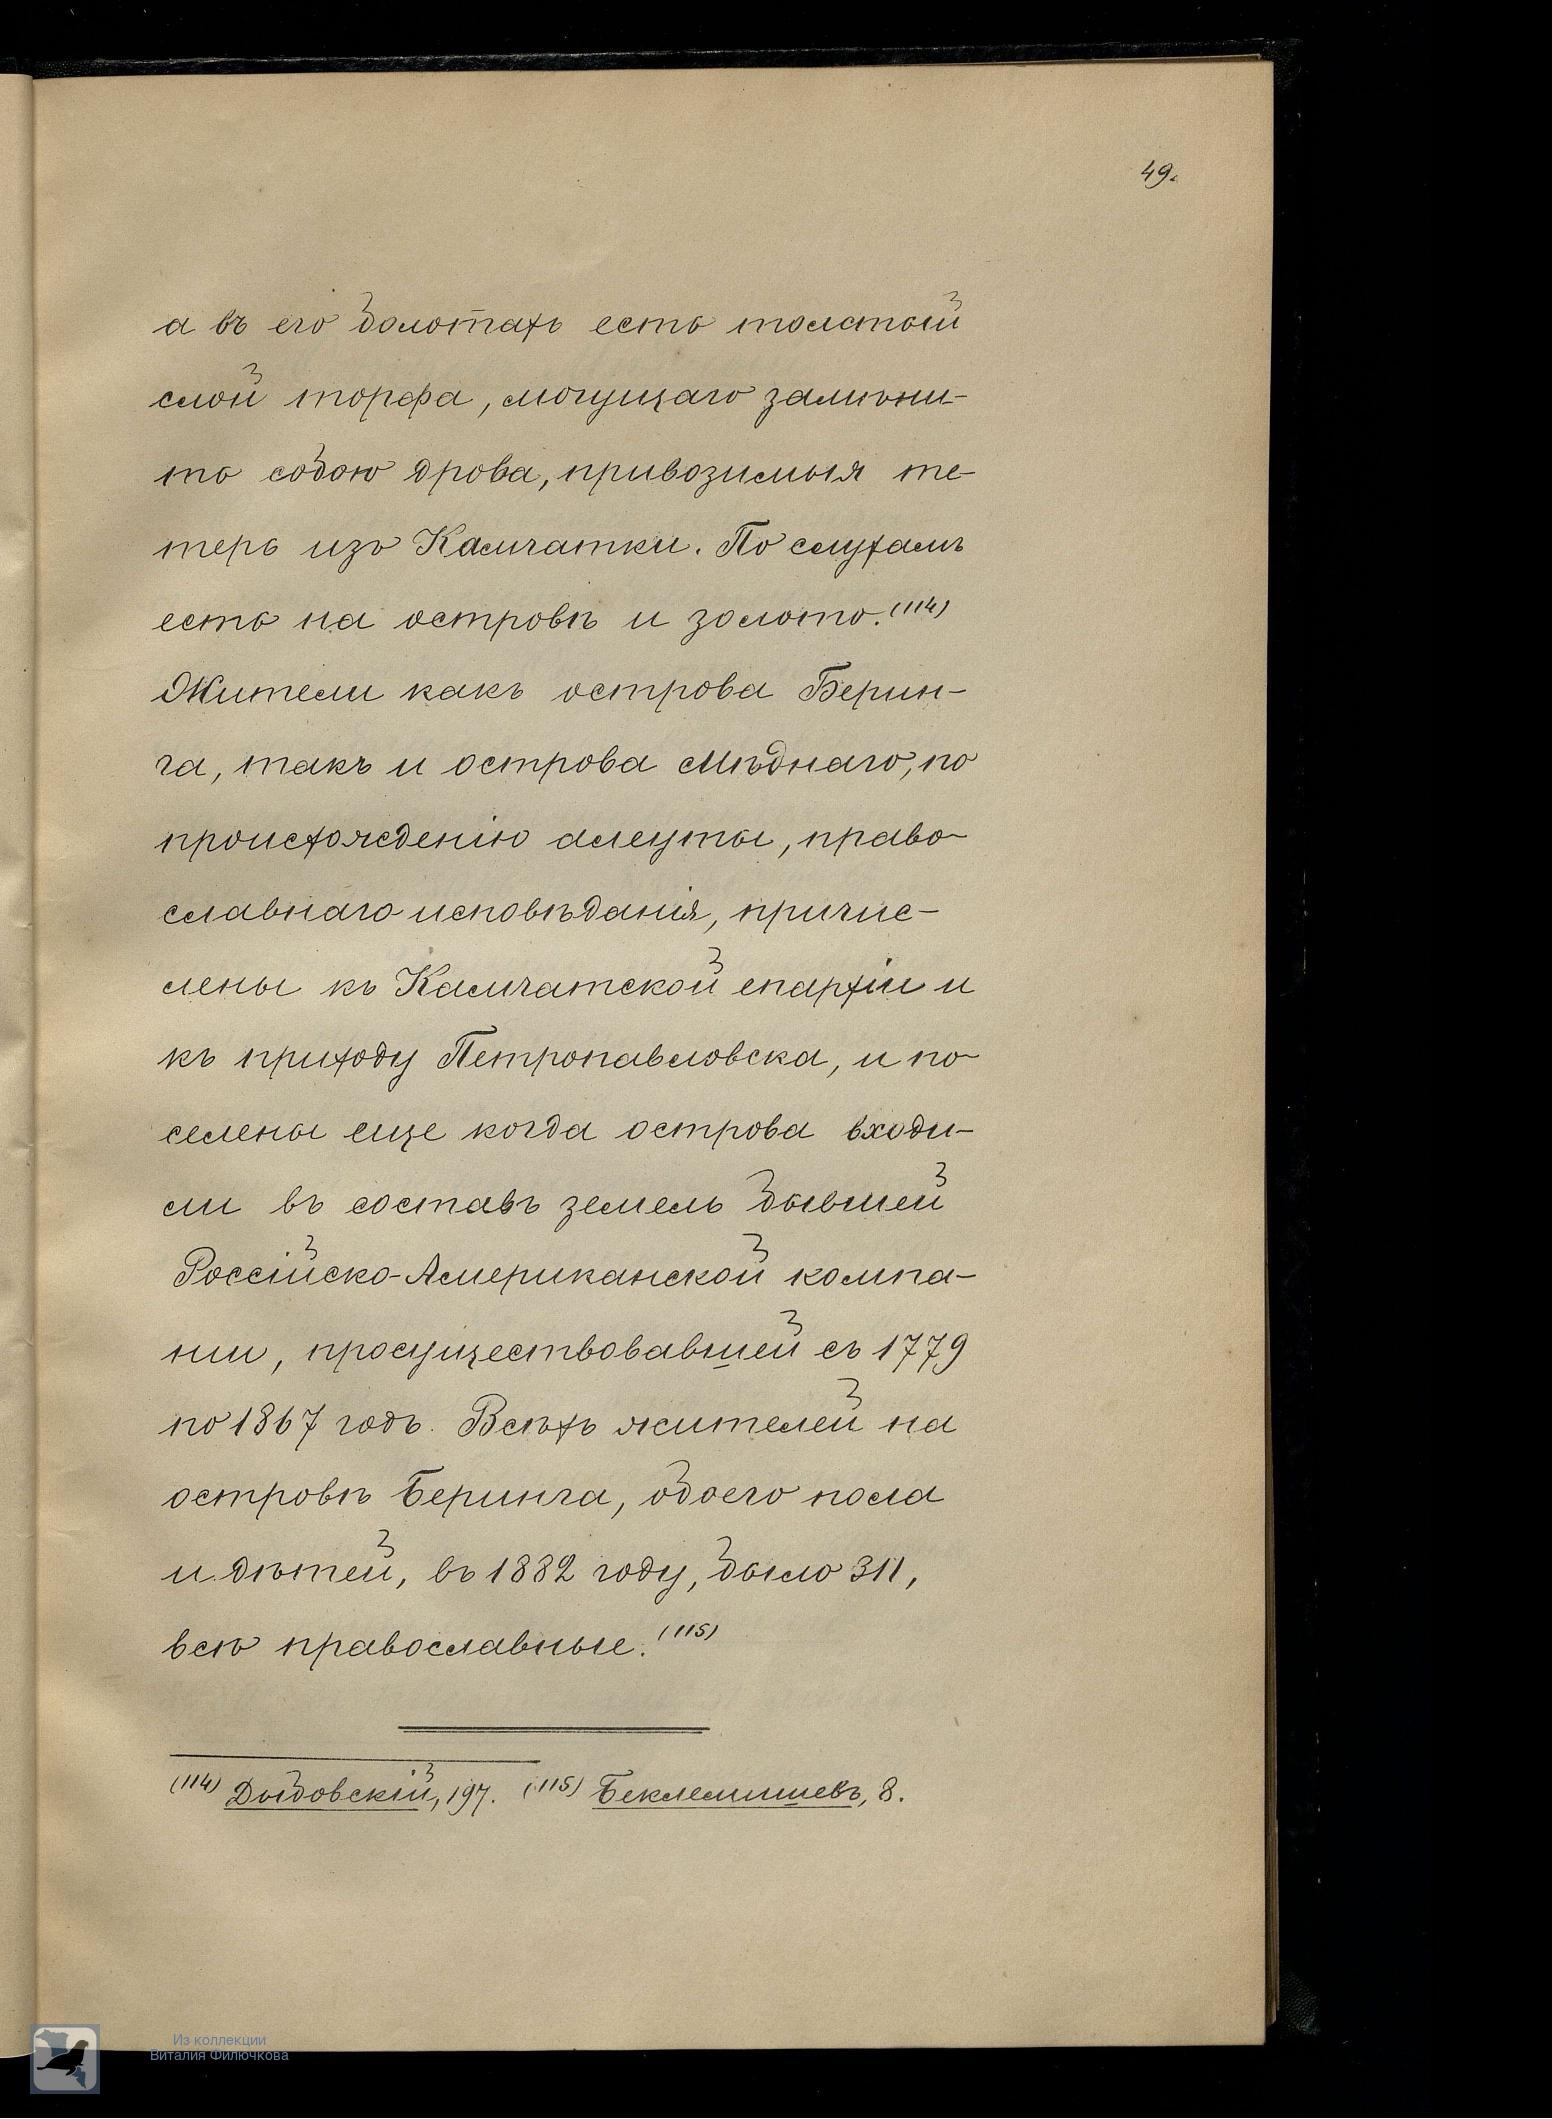 49.
а въ его болотахъ есть толстый
слой торфа, могущаго замѣни-
ть собою дрова, привозимыя те-
перь изъ Камчатки. По слухамъ
есть на островѣ и золото.(114)
Жители какъ острова Берин-
га, такъ и острова Мѣднаго, по
происхожденію алеуты, право-
славнаго исповѣданія, причис-
лены къ Камчатской епархіи и
къ приходу Петропавловска, и по-
селены еще когда острова входи-
ли въ составъ земель бывшей
Россійско-Американской компа-
нии, просуществовавшей съ 1779
по 1867 годъ. Всѣхъ жителей на
островѣ Беринга, обоего пола
и дѣтей, въ 1882 году, было 311,
всѣ православные.(115)
(114) Дыбовскій, 197. (115) Беклемишевъ, 8.
Из коллекции
Виталия Филючкова